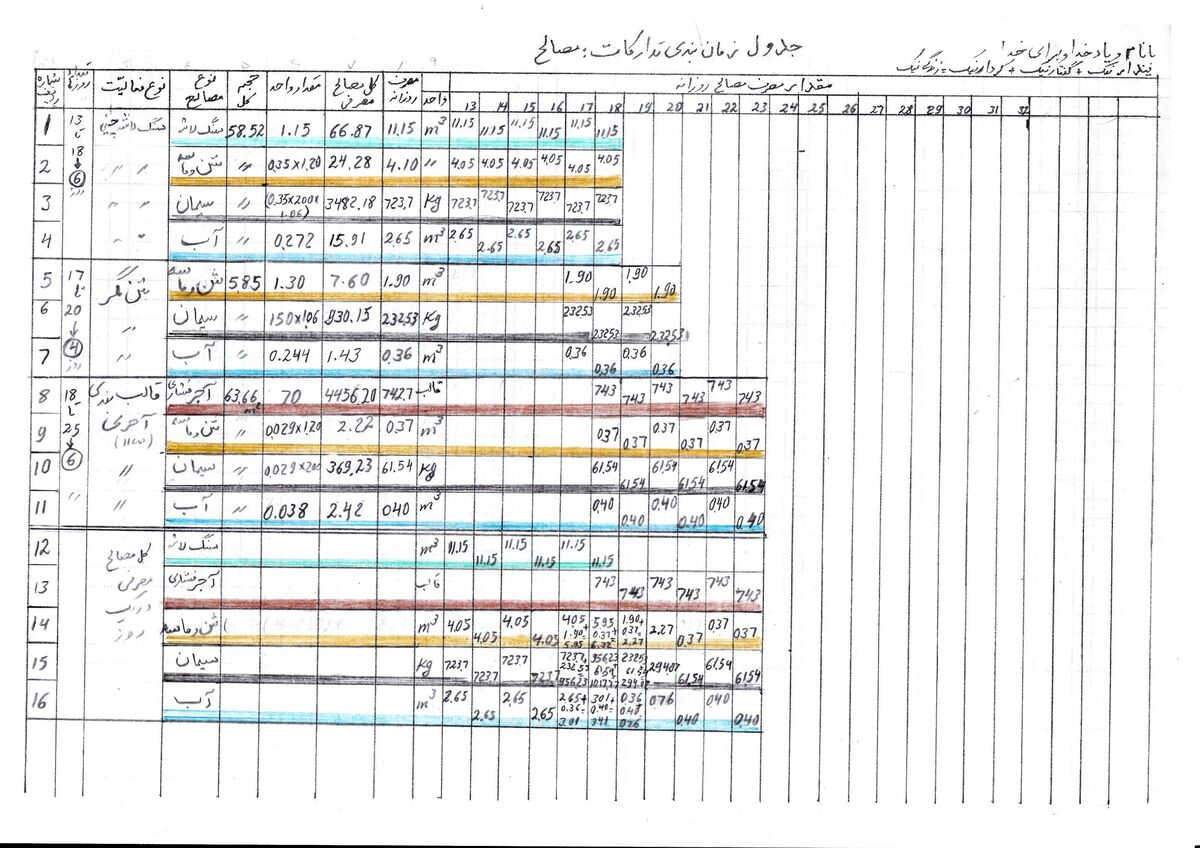 با نام و یاد خدا و برای خدا
پندار نیک + گفتار نیک + کردار نیک = زندگی نیک
جدول زمان بندی تدارکات: مصالح
شماره ردیف | تعداد روزکار | نوع فعالیت | نوع مصالح | حجم کل | مقدار واحد | کل مصالح مصرفی | مصرف روزانه | واحد | مقدار مصرف مصالح روزانه
13 14 15 16 17 18 19 20 21 22 23 24 25 26 27 28 29 30 31 32
1 | 13 تا 18 ↓ 6 روز | سنگ لاشه چینی | سنگ لاشه | 58.52 | 1.15 | 66.87 | 11.15 | m³ | 11.15 11.15 11.15 11.15 11.15 11.15
2 | " " | شن و ماسه | " | 0.35x1.20 | 24.28 | 4.10 | " | 4.05 4.05 4.05 4.05 4.05 4.05
3 | " " | سیمان | " | (0.35x200x1.06) | 3482.18 | 723.7 | Kg | 723.7 723.7 723.7 723.7 723.7 723.7
4 | " " | آب | " | 0.272 | 15.91 | 2.65 | m³ | 2.65 2.65 2.65 2.65 2.65 2.65
5 | 17 تا 20 ↓ 4 روز | شن مگر | شن و ماسه | 5.85 | 1.30 | 7.60 | 1.90 | m³ | 1.90 1.90 1.90 1.90
6 | " | سیمان | " | 150x1.06 | 930.15 | 232.53 | Kg | 232.53 232.53 232.53 232.53
7 | " | آب | " | 0.244 | 1.43 | 0.36 | m³ | 0.36 0.36 0.36 0.36
8 | 18 تا 25 ↓ 6 " | قالب بندی آجری | آجر فشاری | 63.66 m² | 70 | 4456.20 | 742.7 | قالب | 743 743 743 743 743 743
9 | شن و ماسه | " | 0.029x1.20 | 2.22 | 0.37 | m³ | 0.37 0.37 0.37 0.37 0.37 0.37
10 | " | سیمان | " | 0.029x200 | 369.23 | 61.54 | Kg | 61.54 61.54 61.54 61.54 61.54 61.54
11 | " | آب | " | 0.038 | 2.42 | 040 | m³ | 0.40 0.40 0.40 0.40 0.40 0.40
12 | کل مصالح مصرفی در یک روز | سنگ لاشه | m³ | 11.15 11.15 11.15 11.15 11.15 11.15
13 | آجر فشاری | قالب | 743 743 743 743 743 743
14 | شن و ماسه | m³ | 4.05 4.05 4.05 4.05 4.05+1.90=5.95 5.95 0.37+ 6.32 1.90+0.37=2.27 2.27 0.37 0.37 0.37
15 | سیمان | Kg | 723.7 723.7 723.7 723.7 723.7+232.53 956.23 956.23 61.54 1017.77 232.53 61.54 294.07 294.07 61.54 61.54 61.54
16 | آب | m³ | 2.65 2.65 2.65 2.65 2.65+0.36=3.01 3.01+0.40=3.41 0.36 0.40 0.76 0.76 0.40 0.40 0.40